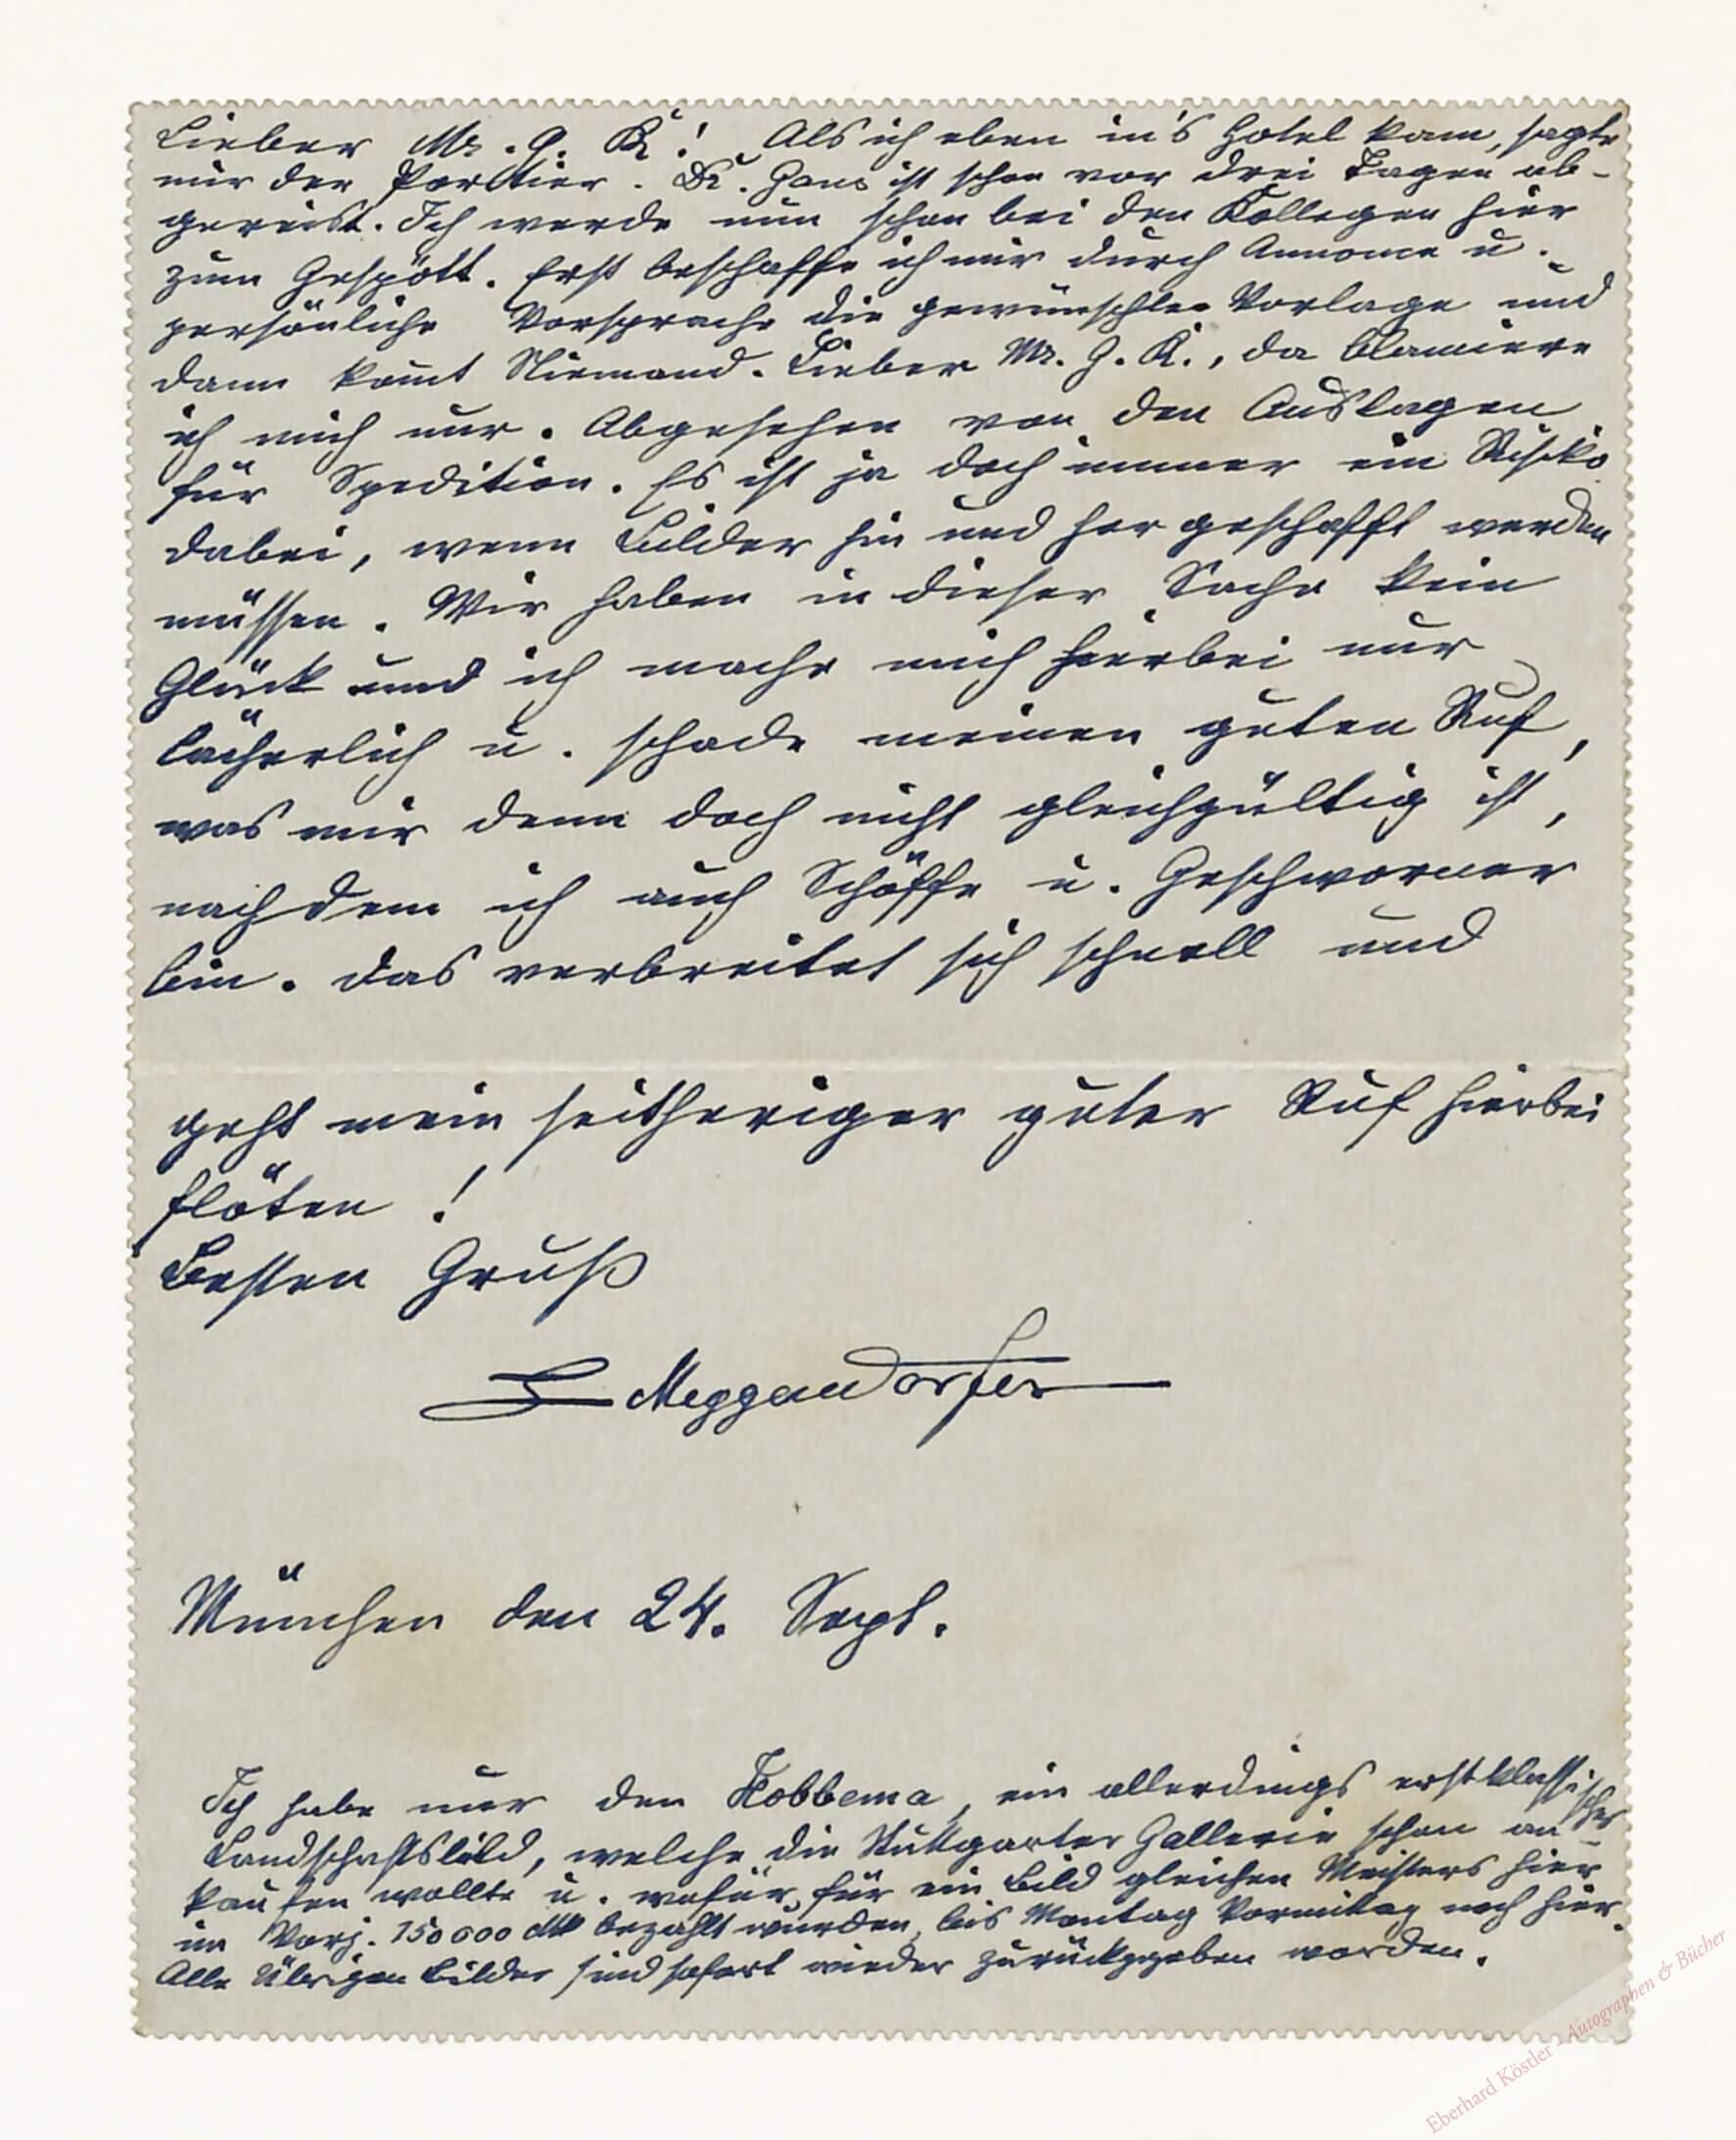 Lieber Mr. G. K.! Als ich eben in's Hotel kam, sagte
mir der Portier. Dr. Gans ist schon vor drei Tagen ab-
gereist. Ich werde nun schon bei den Kollegen hier
zum Gespött. Erst beschaffe ich mir durch Annonce u.
persönliche Vorsprache die gewünschte Vorlage und
dann kom̄t Niemand. Lieber Mr. G. K., da blamiere
ich mich nur. Abgesehen von den Auslagen
für Spedition. Es ist ja doch immer ein Risiko
dabei, wenn Bilder hin und her geschafft werden
müssen. Wir haben in dieser Sache kein
Glück und ich mache mich hierbei nur
lächerlich u. schade meinen guten Ruf,
was mir denn doch nicht gleichgültig ist,
nachdem ich auch Schöffe u. Geschworner
bin. Das verbreitet sich schnell und
geht mein seitheriger guter Ruf hierbei
flöten!
Besten Gruß
L Meggendorfer
München den 24. Sept.
Ich habe nur den Hobbema, ein allerdings erstklassisches
Landschaftsbild, welche die Stuttgarter Gallerie schon an
kaufen wollte u. wofür für ein Bild gleichen Meisters hier
im Vorj. 150000 Mk bezahlt wurden, bis Montag Vormittag noch hier.
Alle übrigen Bilder sind sofort wieder zurückgegeben worden.
Eberhard Köstler - Autographen & Bücher